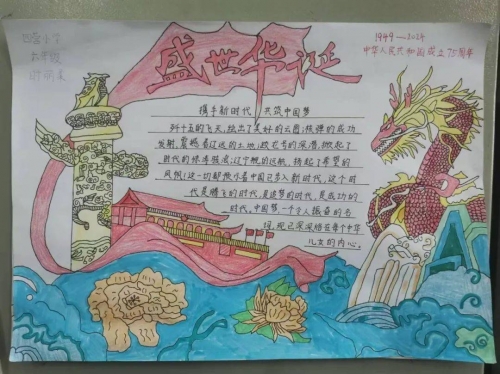 六年级
盛世华诞
1949—2024
中华人民共和国成立75周年
携手新时代,共筑中国梦
歼十五的飞天,绘出了美好的云图;核弹的成功
发射,震撼着辽远的土地;蛟龙号的深潜,掀起了
时代的惊涛骇浪;辽宁舰的远航,扬起了希望的
风帆;这一切都预示着中国已步入新时代,这个时
代是腾飞的时代,是追梦的时代,是成功的
时代。中国梦一个令人振奋的名
词,现已深深烙在每个中华
儿女的内心。